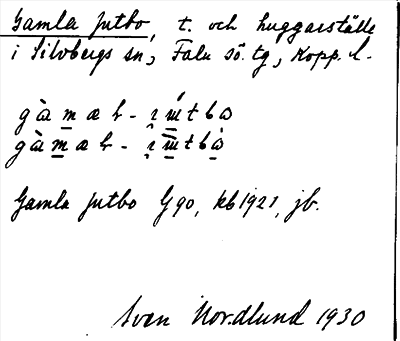 Gamla Jutbo, t. och huggarställe
i Silvbergs sn, Falu sö. tg, Kopp. l.
Gamla Jutbo G90, kb 1921, jb.
Sven Nordlund 1930